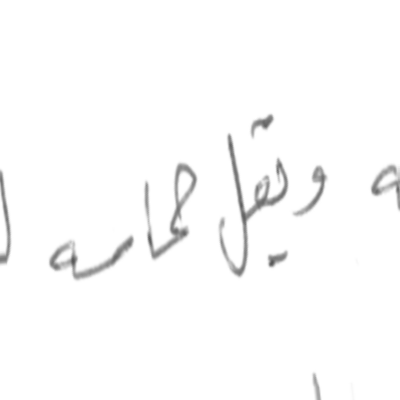 ويقل حماسه